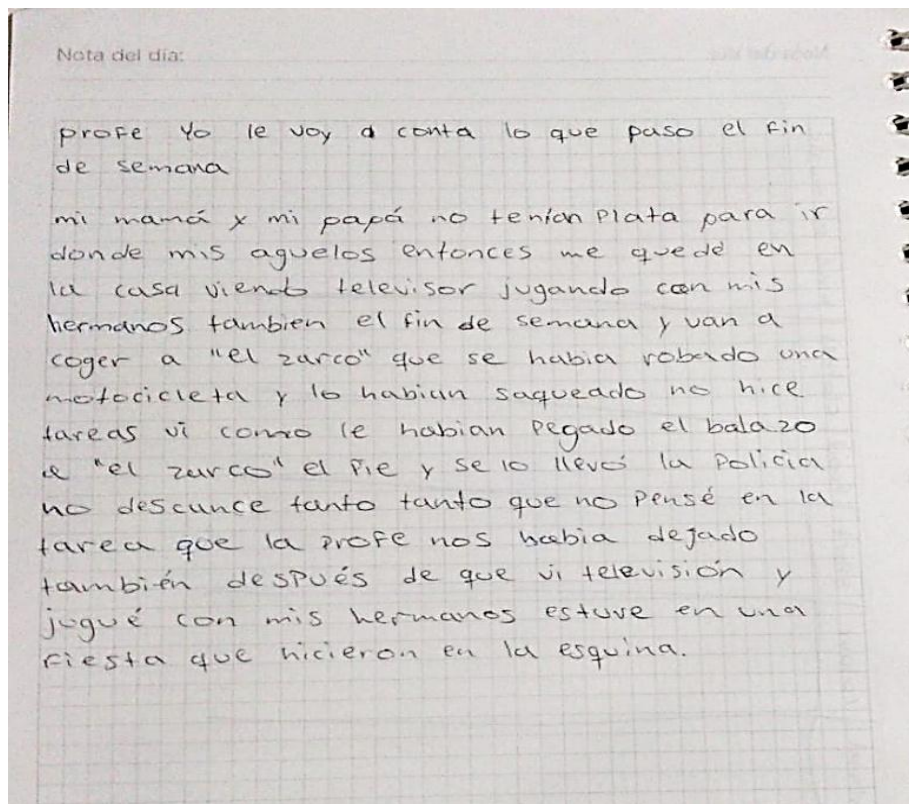 Nota del día:
profe Yo le voy a conta lo que paso el fin
de semana
mi mamá y mi papá no tenían Plata para ir
donde mis aguelos entonces me quede en
la casa viendo televisor jugando con mis
hermanos tambien el fin de semana y van a
coger a "el zarco" que se habia robado una
motocicleta y lo habian saqueado no hice
tareas vi como le habian pegado el balazo
a "el zarco" el Pie y se lo llevó la Policia
no descance tanto tanto que no Pensé en la
tarea que la Profe nos habia dejado
también después de que vi televisión y
jugué con mis hermanos estuve en una
fiesta que hicieron en la esquina.